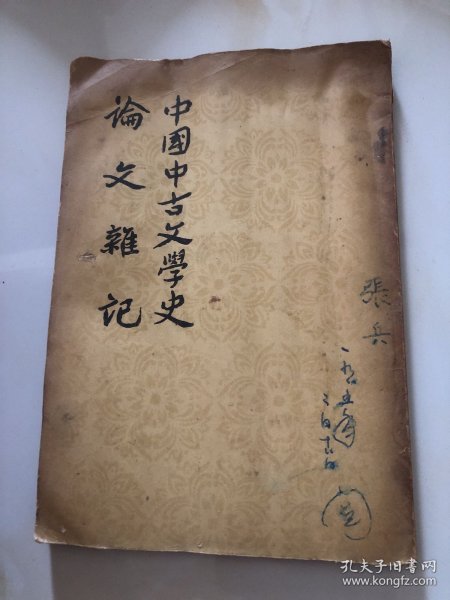 中國中古文學史
論文雜記
張兵
孔夫子旧书网
www.kongfz.com